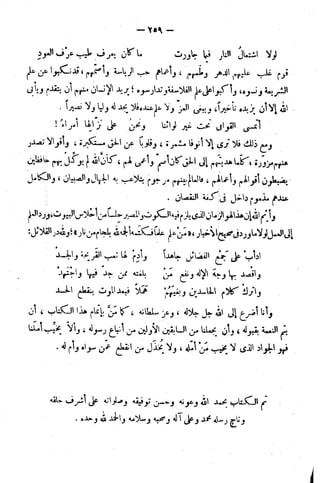 — ٢٥٩ —
لولا اشتعال النار فيما جاورت ما كان يعرف طيب عرف العود
قوم غلب عليهم الدهر وطمهم ، وأعماهم حب الرياسة وأصمهم ، قد نكبوا عن علم
الشريعة ونسوه ، وأكبوا على علم الفلاسفة وتدارسوه ؛ يريد الإنسان منهم أن يتقدم ويأبى
الله إلا أن يزيده تأخيراً ، ويبغى العز ولا علم عنده فلا يجد له وليا ولا نصيراً .
أتمشى القوافى تحت غير لوائنا ونحن على قوالها أمراء !
ومع ذلك فلا ترى إلا أنوفا مشمرة ، وقلوبا عن الحق مستكبرة ، وأقوالا تصدر
عنهم مزورة ، كلما هديتهم إلى الحق كان أصم وأعمى لهم ، كأن الله لم يوكل بهم حافظين
يضبطون أقوالهم وأعمالهم ، فالعالم بينهم مرجوم يتلاعب به الجهال والصبيان ، والكامل
عندهم مذموم داخل فى كفة النقصان .
وأيم الله إن هذا لهو الزمان الذى يلزم فيه السكوت والمصير حلسا من أحلاس البيوت ، ورد العلم
إلى العمل لولا ما ورد فى صحيح الأخبار ، «من علم علما فكتمه ألجمه الله بلجام من نار» ؛ ولله در القائل :
ادأب على جمع الفضائل جاهداً وأدم لها تعب القريحة والجسد
واقصد بها وجه الإله ونفع من بلغته ممن جد فيها واجتهد
واترك كلام الحاسدين وبغيهم هملاً فبعد الموت ينقطع الحسد
وأنا أضرع إلى الله جل جلاله ، وعز سلطانه ، كما منّ بإتمام هذا الكتاب ، أن
يتم النعمة بقبوله ، وأن يجعلنا من السابقين الأولين من أتباع رسوله ، وألا يخيب أملنا
فهو الجواد الذى لا يخيب من أمله ، ولا يخذل من انقطع عمن سواه وأم له .
تم الكتاب بحمد الله وعونه وحسن توفيقه وصلواته على أشرف خلقه
وتاج رسله محمد وعلى آله وصحبه وسلامه والحمد لله وحده .